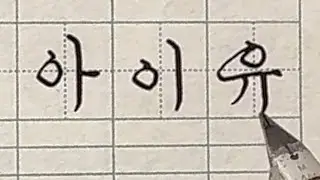 아이유